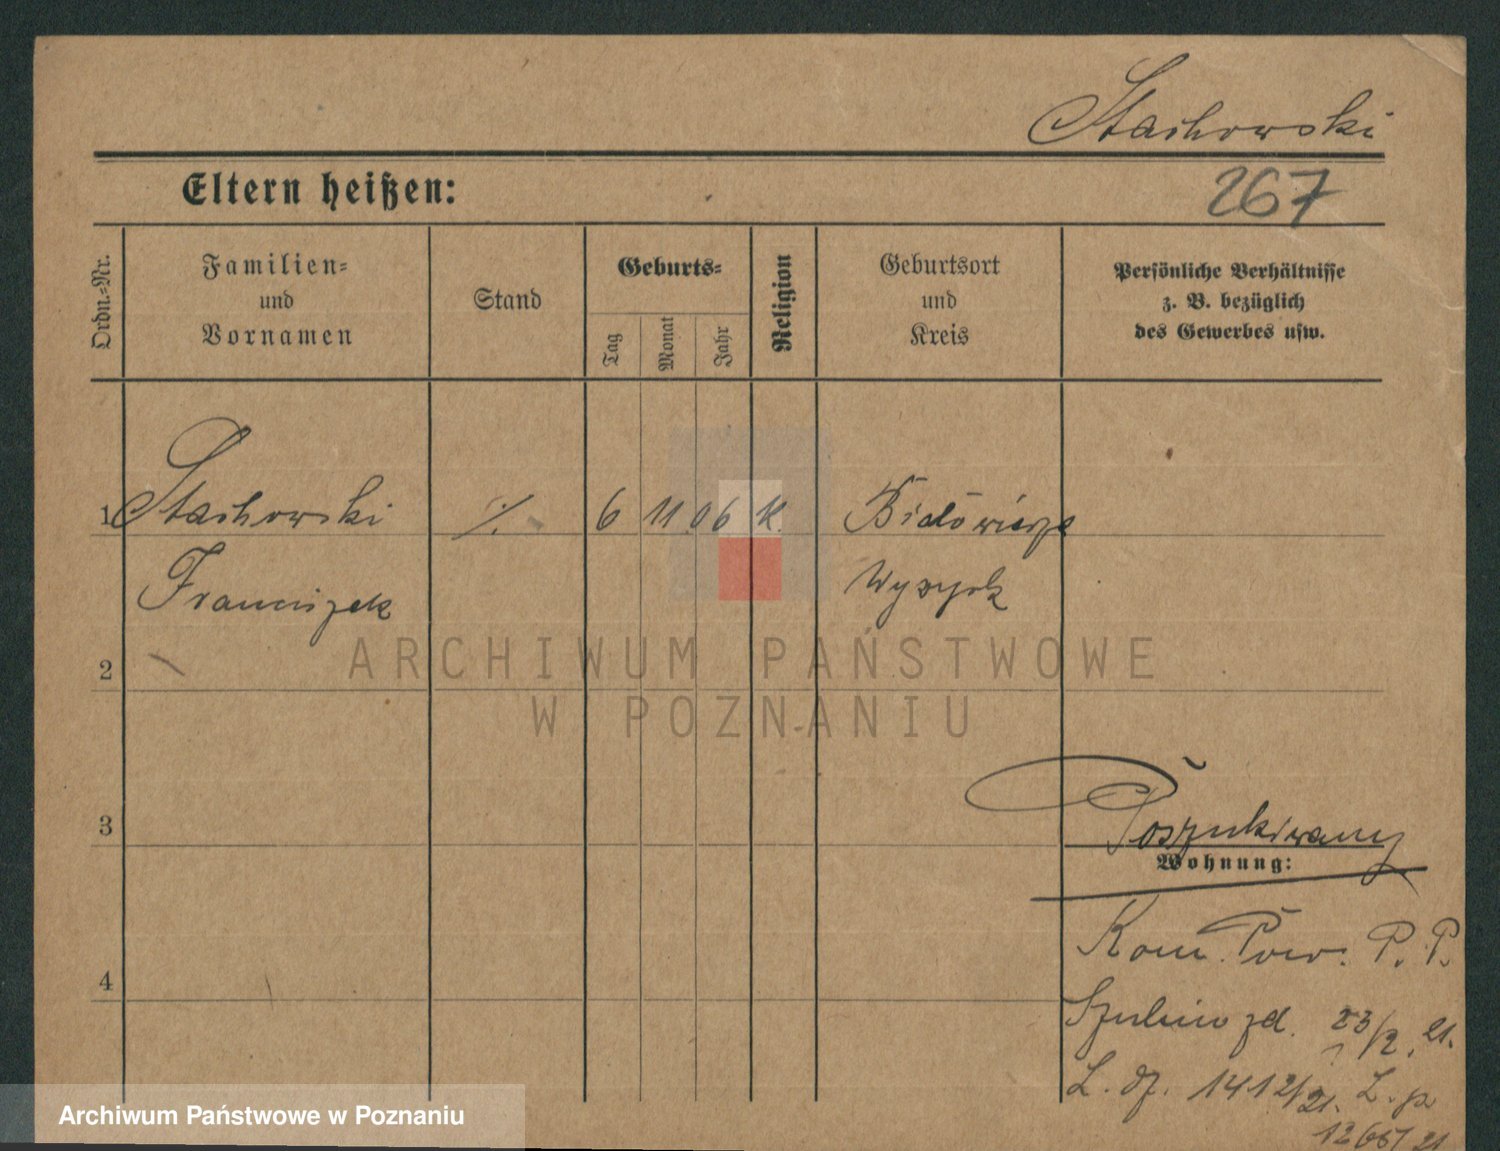 Stachowski
Eltern heißen:
267
Ordn.-Nr.
Familien-
und
Vornamen
Stand
Geburts-
Tag
Monat
Jahr
Religion
Geburtsort
und
Kreis
Persönliche Verhältnisse
z. B. bezüglich
des Gewerbes usw.
1 Stachowski 6 11. 06 K.
Franciszek Wyrzysk
2
ARCHIWUM PAŃSTWOWE
W POZNANIU
3
Poszukiwany
Wohnung:
Kom. Pow. P. P.
4
Szubin zd. 23/2. 21.
L. dz. 1412/21. L. p
Archiwum Państwowe w Poznaniu